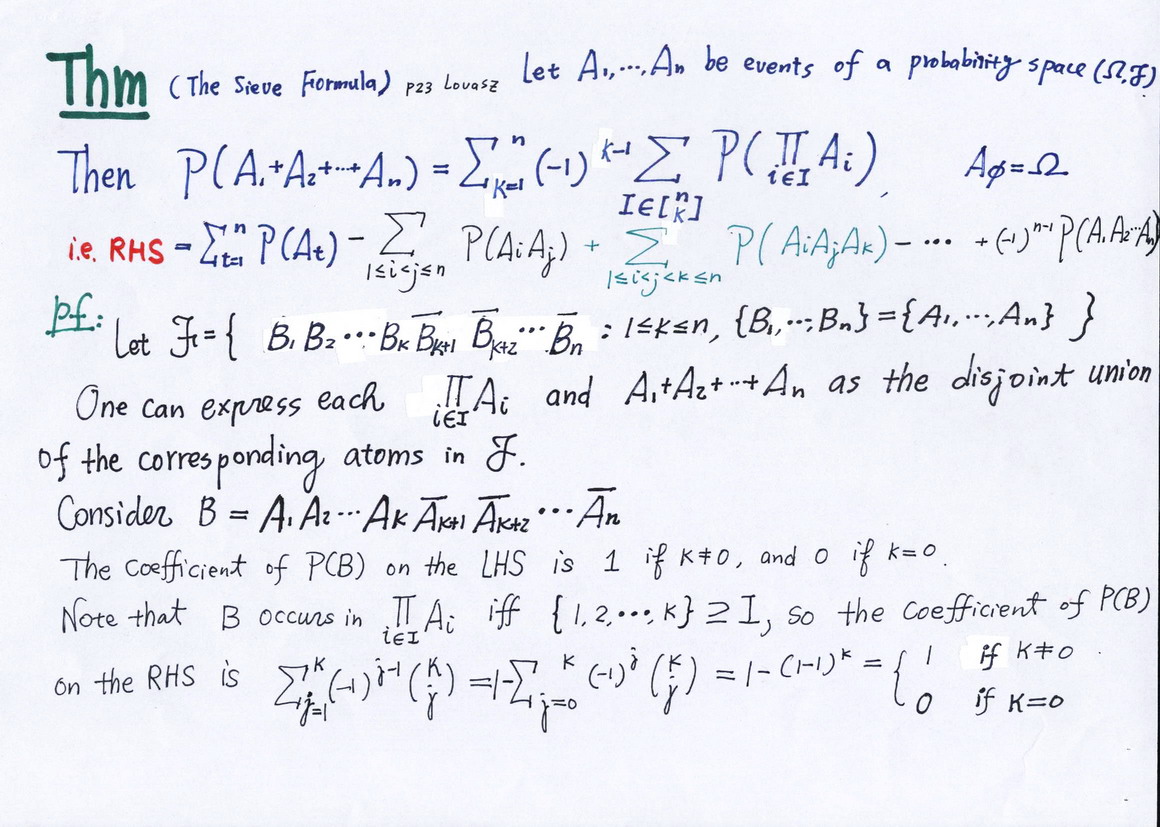 Thm (The Sieve Formula) P23 Lovasz Let A₁,⋯,Aₙ be events of a probability space (Ω,ℱ)
Then P(A₁+A₂+⋯+Aₙ) = ∑ₖ₌₁ⁿ (-1)ᵏ⁻¹ ∑_{I∈[n k]} P(∏_{i∈I} Aᵢ), A_ϕ=Ω
i.e. RHS = ∑ₜ₌₁ⁿ P(Aₜ) - ∑_{1≤i<j≤n} P(AᵢAⱼ) + ∑_{1≤i<j<k≤n} P(AᵢAⱼAₖ) - ⋯ + (-1)ⁿ⁻¹ P(A₁A₂⋯Aₙ)
pf: Let ℱ = { B₁B₂⋯Bₖ B̅ₖ₊₁ B̅ₖ₊₂ ⋯ B̅ₙ : 1≤k≤n, {B₁,⋯,Bₙ}={A₁,⋯,Aₙ} }
One can express each ∏_{i∈I} Aᵢ and A₁+A₂+⋯+Aₙ as the disjoint union
of the corresponding atoms in ℱ.
Consider B = A₁A₂⋯Aₖ A̅ₖ₊₁ A̅ₖ₊₂ ⋯ A̅ₙ
The coefficient of P(B) on the LHS is 1 if k≠0, and 0 if k=0.
Note that B occurs in ∏_{i∈I} Aᵢ iff {1,2,⋯,k} ⊇ I, so the coefficient of P(B)
on the RHS is ∑ⱼ₌₁ᵏ (-1)ʲ⁻¹ (k j) = 1-∑ⱼ₌₀ᵏ (-1)ʲ (k j) = 1-(1-1)ᵏ = { 1 if k≠0
0 if k=0